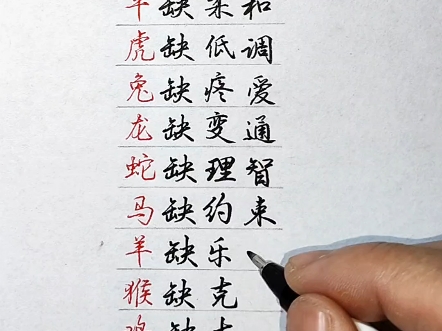 缺柔和
虎缺低调
兔缺疼爱
龙缺变通
蛇缺理智
马缺约束
羊缺乐
猴缺克
鸡缺